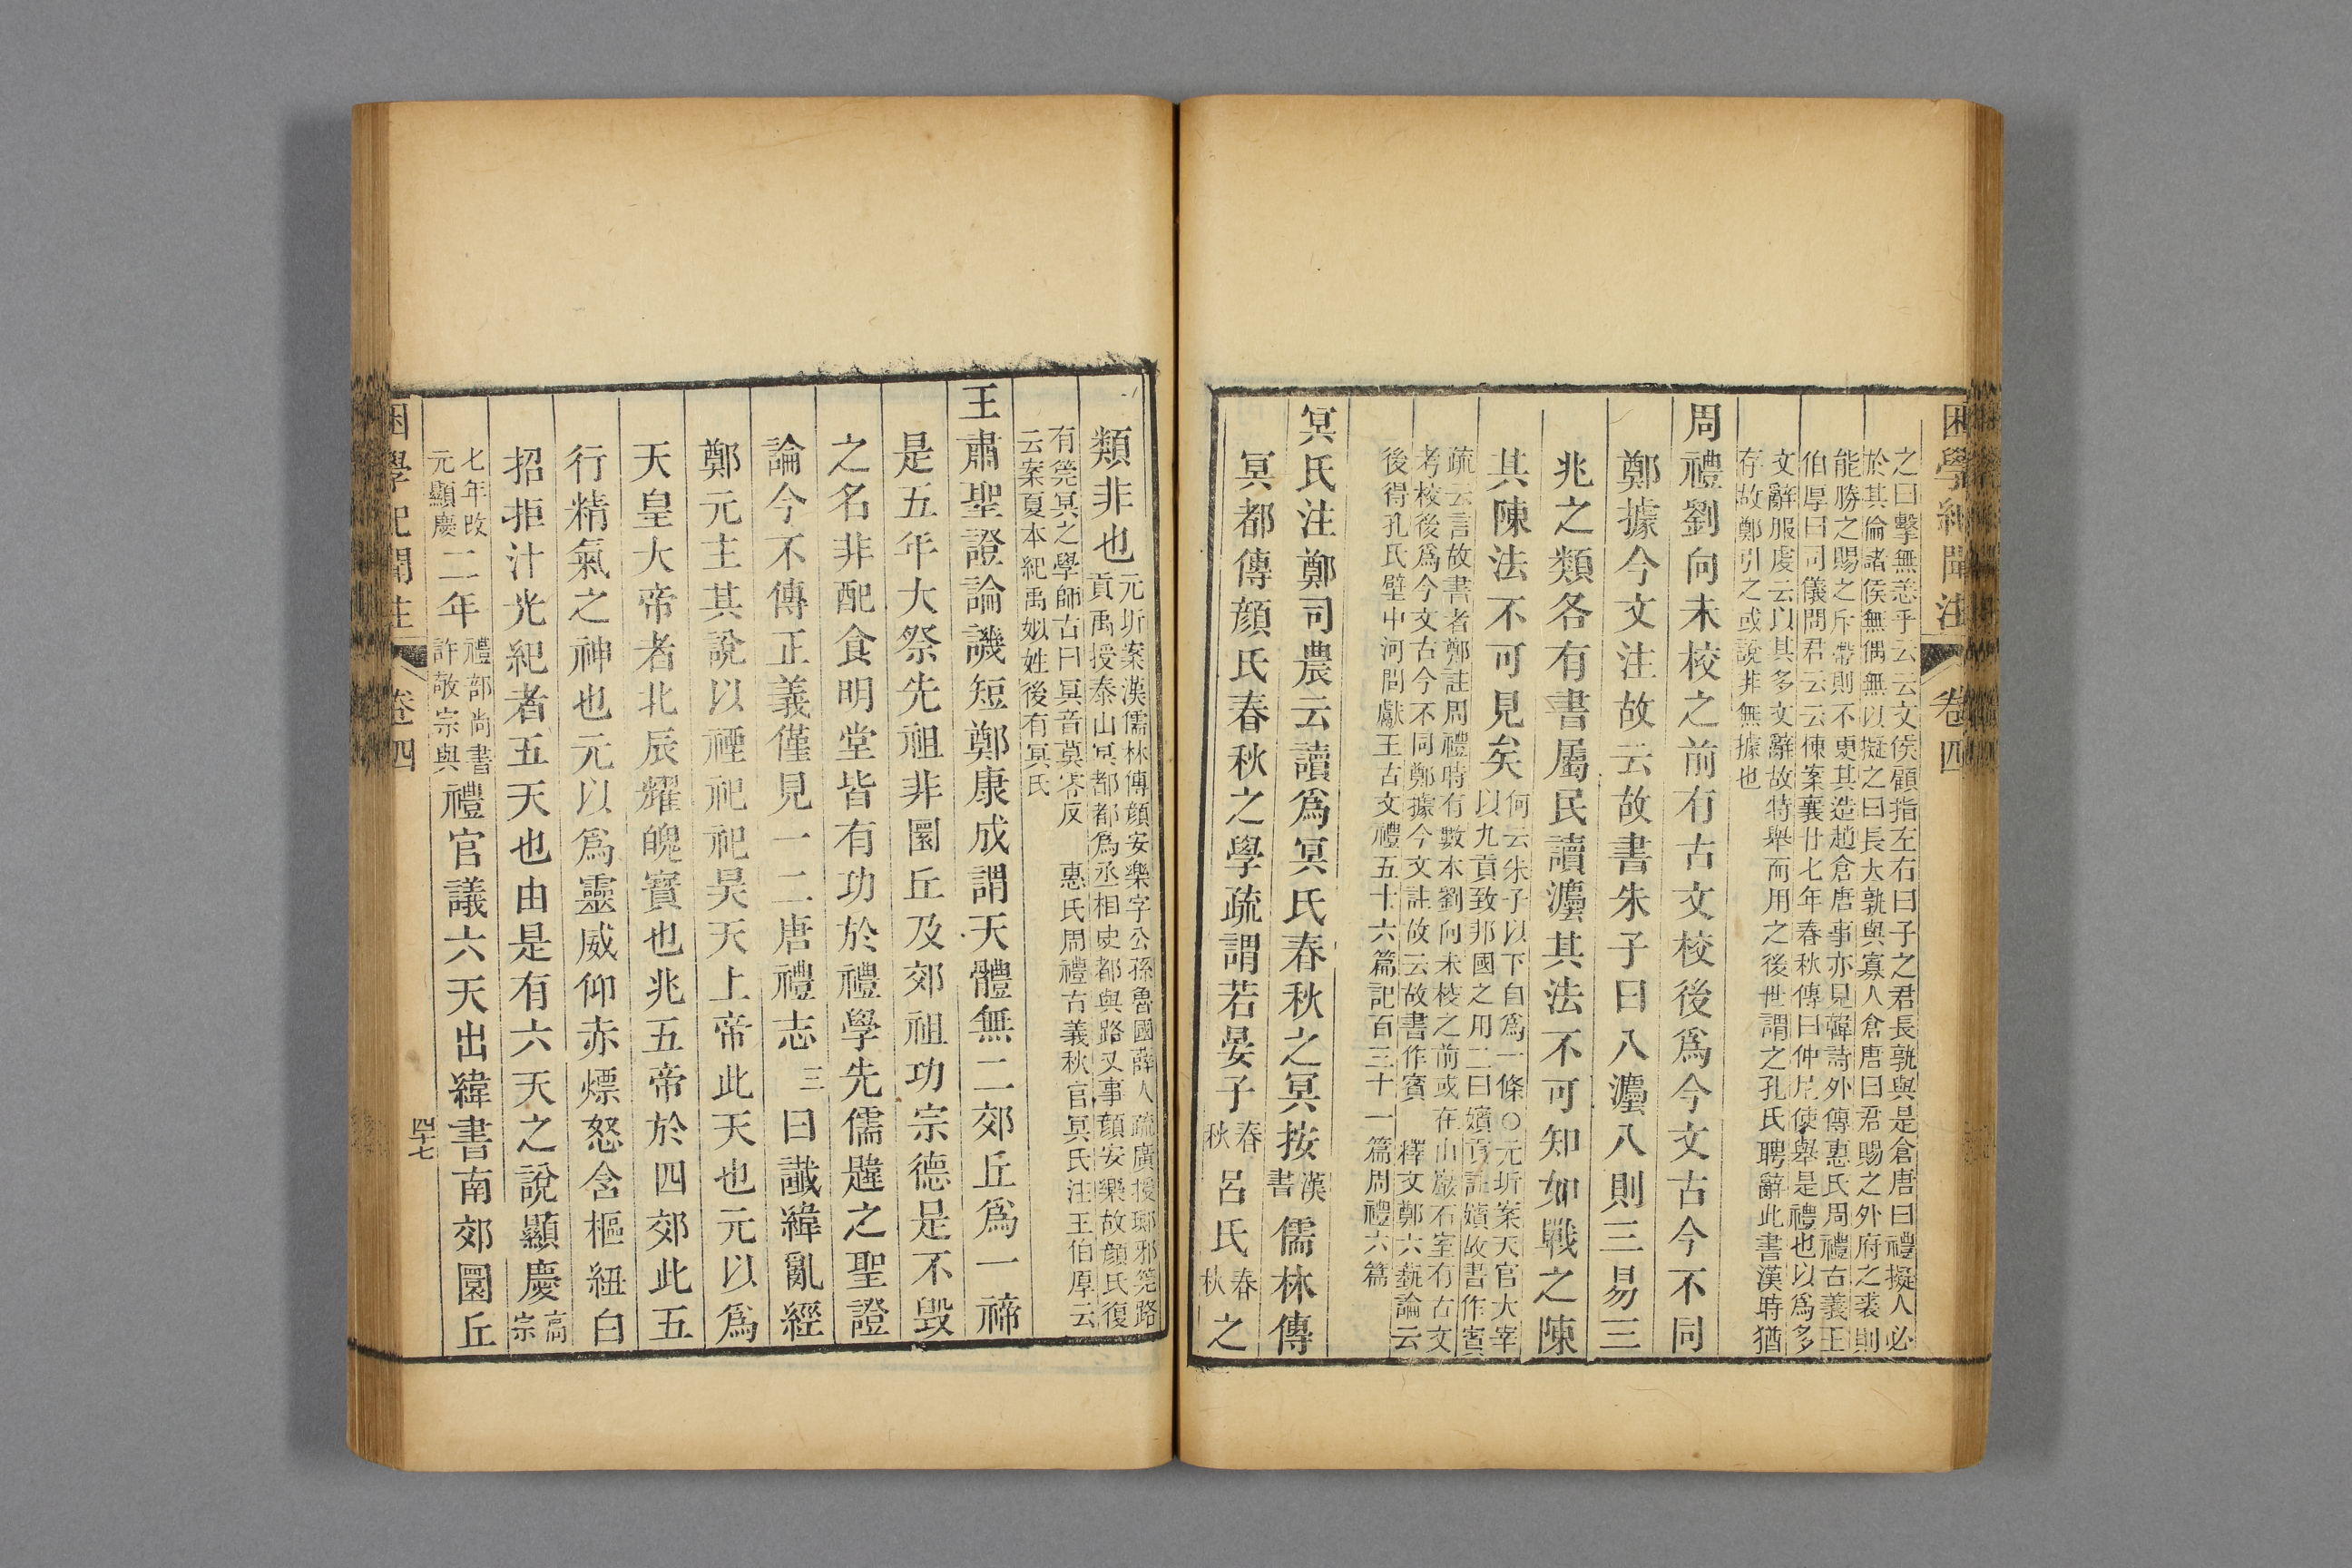 困學紀聞注 卷四
之曰擊無恙乎云云文侯顧指左右曰子之君長孰與是倉唐曰禮擬人必
於其倫諸侯無偶無以擬之曰長大孰與寡人倉唐曰君賜之外府之裘則
能勝之賜之斥帶則不更其造趙倉唐事亦見韓詩外傳惠氏周禮古義王
伯厚曰司儀問君云云棟案襄廿七年春秋傳曰仲尼使舉是禮也以爲多
文辭服虔云以其多文辭故特舉而用之後世謂之孔氏聘辭此書漢時猶
存故鄭引之或說非無據也
周禮劉向未校之前有古文校後爲今文古今不同
鄭據今文注故云故書朱子曰八灋八則三易三
兆之類各有書屬民讀灋其法不可知如戰之陳
其陳法不可見矣何云朱子以下自爲一條○元圻案天官大宰
以九貢致邦國之用二曰嬪貢註嬪故書作賓
疏云言故書者鄭註周禮時有數本劉向未校之前或在山巖石室有古文
考校後爲今文古今不同鄭據今文註故云故書作賓 釋文鄭六蓺論云
後得孔氏壁中河間獻王古文禮五十六篇記百三十一篇周禮六篇
冥氏注鄭司農云讀爲冥氏春秋之冥按漢書儒林傳
冥都傳顔氏春秋之學疏謂若晏子春秋呂氏春秋之
類非也元圻案漢儒林傳顏安樂字公孫魯國薛人疏廣授琅邪筦路
貢禹授泰山冥都都爲丞相史都與路又事顏安樂故顏氏復
有筦冥之學師古曰冥音莫零反 惠氏周禮古義秋官冥氏注王伯厚云
云案夏本紀禹姒姓後有冥氏
王肅聖證論譏短鄭康成謂天體無二郊丘爲一禘
是五年大祭先祖非圜丘及郊祖功宗德是不毀
之名非配食明堂皆有功於禮學先儒韙之聖證
論今不傳正義僅見一二唐禮志三曰讖緯亂經
鄭元主其說以禋祀祀昊天上帝此天也元以爲
天皇大帝者北辰耀魄寶也兆五帝於四郊此五
行精氣之神也元以爲靈威仰赤熛怒含樞紐白
招拒汁光紀者五天也由是有六天之說顯慶高宗
七年改
元顯慶二年禮部尚書
許敬宗與禮官議六天出緯書南郊圜丘
困學紀聞注 卷四 四十七